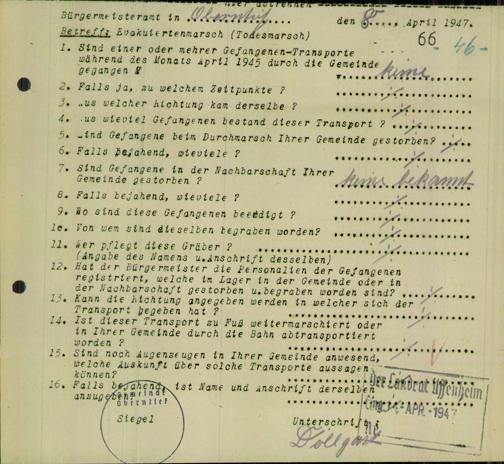 Bürgermeisteramt in Obernzief den 8. April 1947.
66 -46-
Betreff: Evakuiertenmarsch (Todesmarsch)
1. Sind einer oder mehrer Gefangenen-Transporte
während des Monats April 1945 durch die Gemeinde
gegangen ? keine
2. Falls ja, zu welchem Zeitpunkte ?
3. .us welcher Richtung kam derselbe ?
4. .us wieviel Gefangenen bestand dieser Transport ?
5. .ind Gefangene beim Durchmarsch Ihrer Gemeinde gestorben?
6. Falls bejahend, wieviele ?
7. Sind Gefangene in der Nachbarschaft Ihrer
Gemeinde gestorben ? keine bekannt
8. Falls bejahend, wieviele ?
9. Wo sind diese Gefangenen beerdigt ?
10. Von wem sind dieselben begraben worden?
11. Wer pflegt diese Gräber ?
(Angabe des Namens u.Anschrift desselben)
12. Hat der Bürgermeister die Personalien der Gefangenen
registriert, welche im Lager in der Gemeinde oder in
der Nachbarschaft gestorben u.begraben worden sind?
13. Kann die Richtung angegeben werden in welcher sich der
Transport begeben hat ?
14. Ist dieser Transport zu Fuß weitermarschiert oder
in Ihrer Gemeinde durch die Bahn abtransportiert
worden ?
15. Sind noch Augenzeugen in Ihrer Gemeinde anwesend,
welche Auskunft über solche Transporte aussagen
können?
16. Falls bejahend, ist Name und Anschrift derselben
anzugeben
Gemeinde
Siegel
Der Landrat Uffenheim
Eing. 14. APR. 1947
Unterschrift: